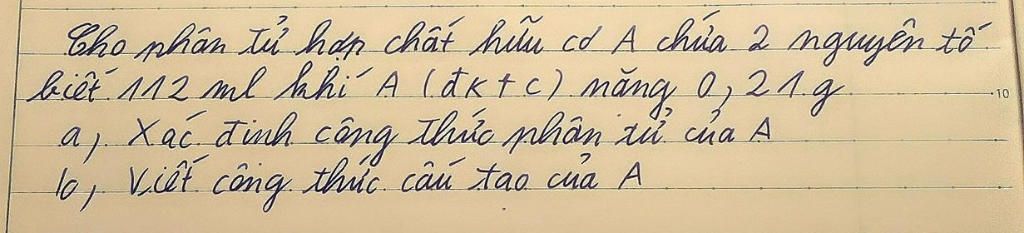 Cho phân tử hợp chất hữu cơ A chứa 2 nguyên tố
biết 112 ml khí A (đktc) nặng 0,21 g
a, Xác định công thức phân tử của A
b, Viết công thức cấu tạo của A
10